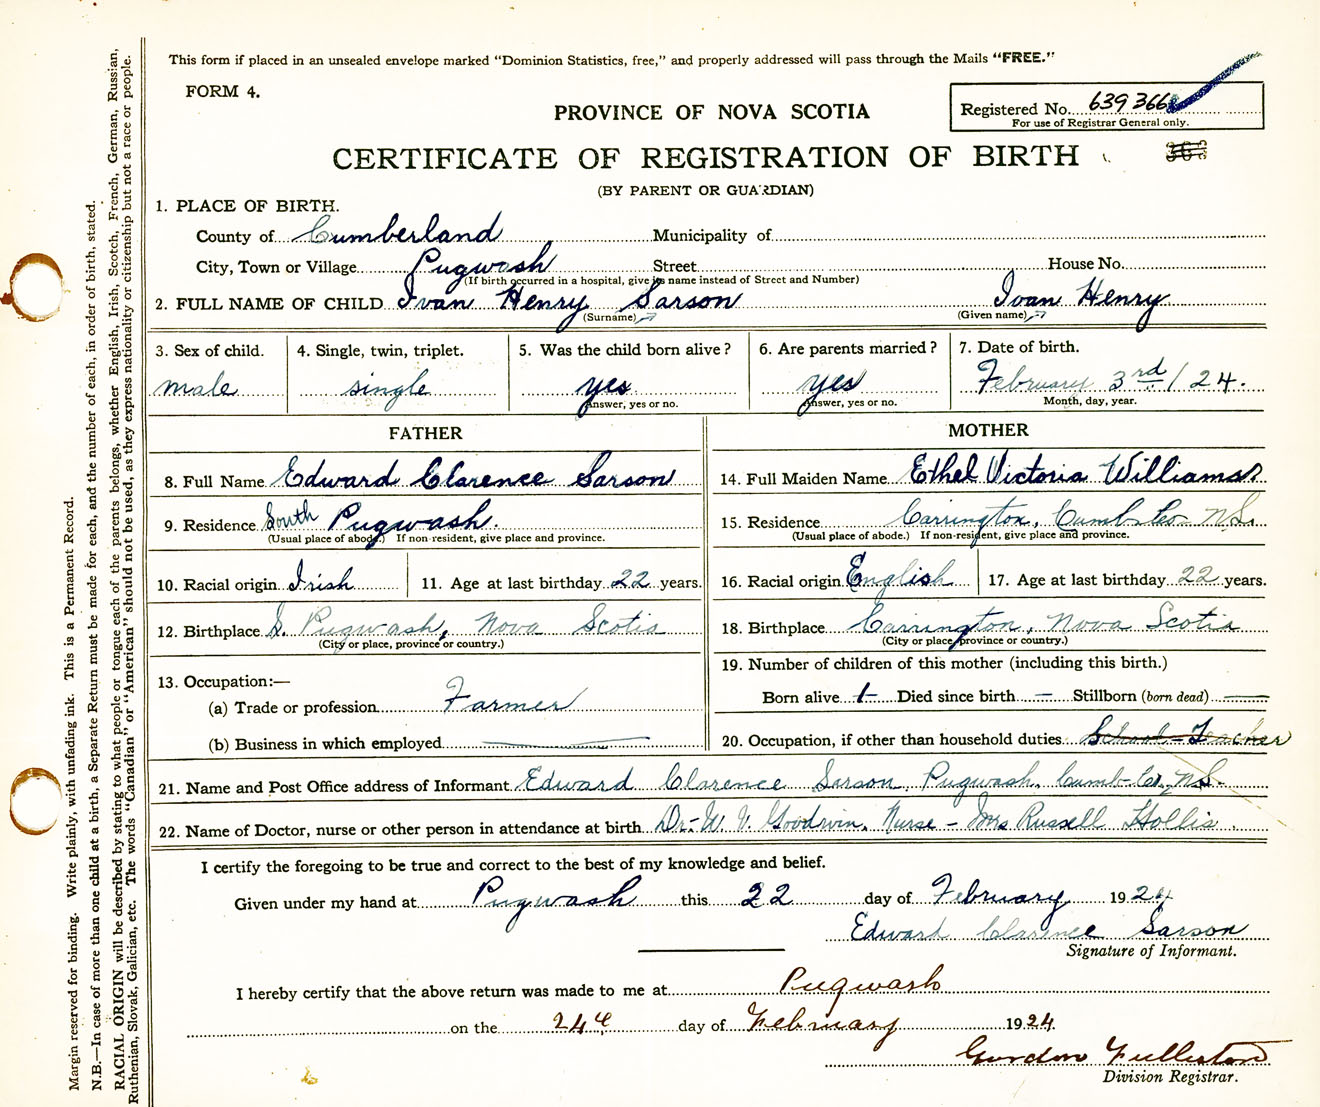 This form if placed in an unsealed envelope marked "Dominion Statistics, free," and properly addressed will pass through the Mails "FREE."
FORM 4.
PROVINCE OF NOVA SCOTIA
Registered No. 639366
For use of Registrar General only.
CERTIFICATE OF REGISTRATION OF BIRTH
363
(BY PARENT OR GUARDIAN)
1. PLACE OF BIRTH.
County of Cumberland Municipality of
City, Town or Village Pugwash Street House No.
(If birth occurred in a hospital, give its name instead of Street and Number)
2. FULL NAME OF CHILD Ivan Henry Sarson Ivan Henry
(Surname) (Given name)
3. Sex of child. 4. Single, twin, triplet. 5. Was the child born alive? 6. Are parents married? 7. Date of birth.
male single yes yes February 3rd / 24.
Answer, yes or no. Answer, yes or no. Month, day, year.
FATHER
8. Full Name Edward Clarence Sarson
9. Residence South Pugwash.
(Usual place of abode.) If non-resident, give place and province.
10. Racial origin Irish 11. Age at last birthday 22 years.
12. Birthplace S. Pugwash, Nova Scotia
(City or place, province or country.)
13. Occupation:—
(a) Trade or profession Farmer
(b) Business in which employed
MOTHER
14. Full Maiden Name Ethel Victoria Williams
15. Residence Carrington, Cumb Co- N.S.
(Usual place of abode.) If non-resident, give place and province.
16. Racial origin English 17. Age at last birthday 22 years.
18. Birthplace Carrington, Nova Scotia
(City or place, province or country.)
19. Number of children of this mother (including this birth.)
Born alive 1- Died since birth — Stillborn (born dead)
20. Occupation, if other than household duties School-Teacher
21. Name and Post Office address of Informant Edward Clarence Sarson, Pugwash, Cumb-Co, N.S.
22. Name of Doctor, nurse or other person in attendance at birth Dr. W. V. Goodwin, Nurse - Mrs Russell Hollis.
I certify the foregoing to be true and correct to the best of my knowledge and belief.
Given under my hand at Pugwash this 22 day of February 1924
Edward Clarence Sarson
Signature of Informant.
I hereby certify that the above return was made to me at Pugwash
on the 24 day of February 1924.
Gordon Fullerton
Division Registrar.
Margin reserved for binding. Write plainly, with unfading ink. This is a Permanent Record.
N.B.—In case of more than one child at a birth, a Separate Return must be made for each, and the number of each, in order of birth, stated.
RACIAL ORIGIN will be described by stating to what people or tongue each of the parents belongs, whether English, Irish, Scotch, French, German, Russian,
Ruthenian, Slovak, Galician, etc. The words "Canadian" or "American" should not be used, as they express nationality or citizenship but not a race or people.